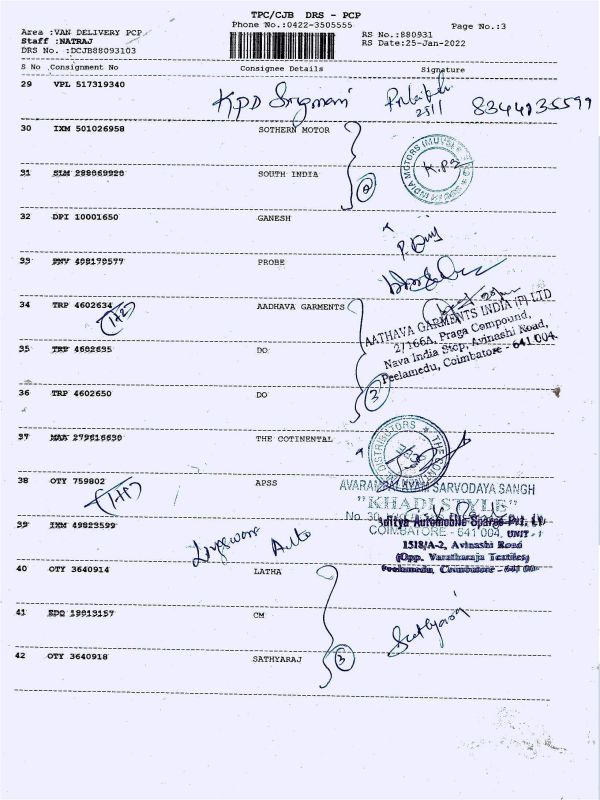 TPC/CJB DRS - PCP
Area :VAN DELIVERY PCP Phone No.:0422-3505555 Page No.:3
Staff :NATRAJ RS No.:880931
DRS No. :DCJB88093103 RS Date:25-Jan-2022
S No Consignment No Consignee Details Signature
29 VPL 517319340
8344935599
30 IXM 501026958 SOTHERN MOTOR
K.P2
31 SLM 288069920 SOUTH INDIA
2
32 DPI 10001650 GANESH
33 PNY 499179577 PROBE
34 TRP 4602634 AADHAVA GARMENTS
AATHAVA GARMENTS INDIA (P) LTD
27/66A, Praga Compound,
Nava India Stop, Avinashi Road,
Peelamedu, Coimbatore - 641 004.
35 TRP 4602635 DO
36 TRP 4602650 DO
3
37 MAA 279616630 THE COTINENTAL
38 OTY 759802 APSS
AVARAMPALAYAM SARVODAYA SANGH
"KHADI STYLE"
39 IXM 49823599
Aditya Automobile Spares Pvt. Lt
COIMBATORE - 641 004. UNIT - 1
1518/A-2, Avinashi Road
(Opp. Varatharaja Textiles)
Peelamedu, Coimbatore - 641 00
Auto
40 OTY 3640914 LATHA
41 EPQ 19919157 CM
Sathyaraj
42 OTY 3640918 SATHYARAJ
3